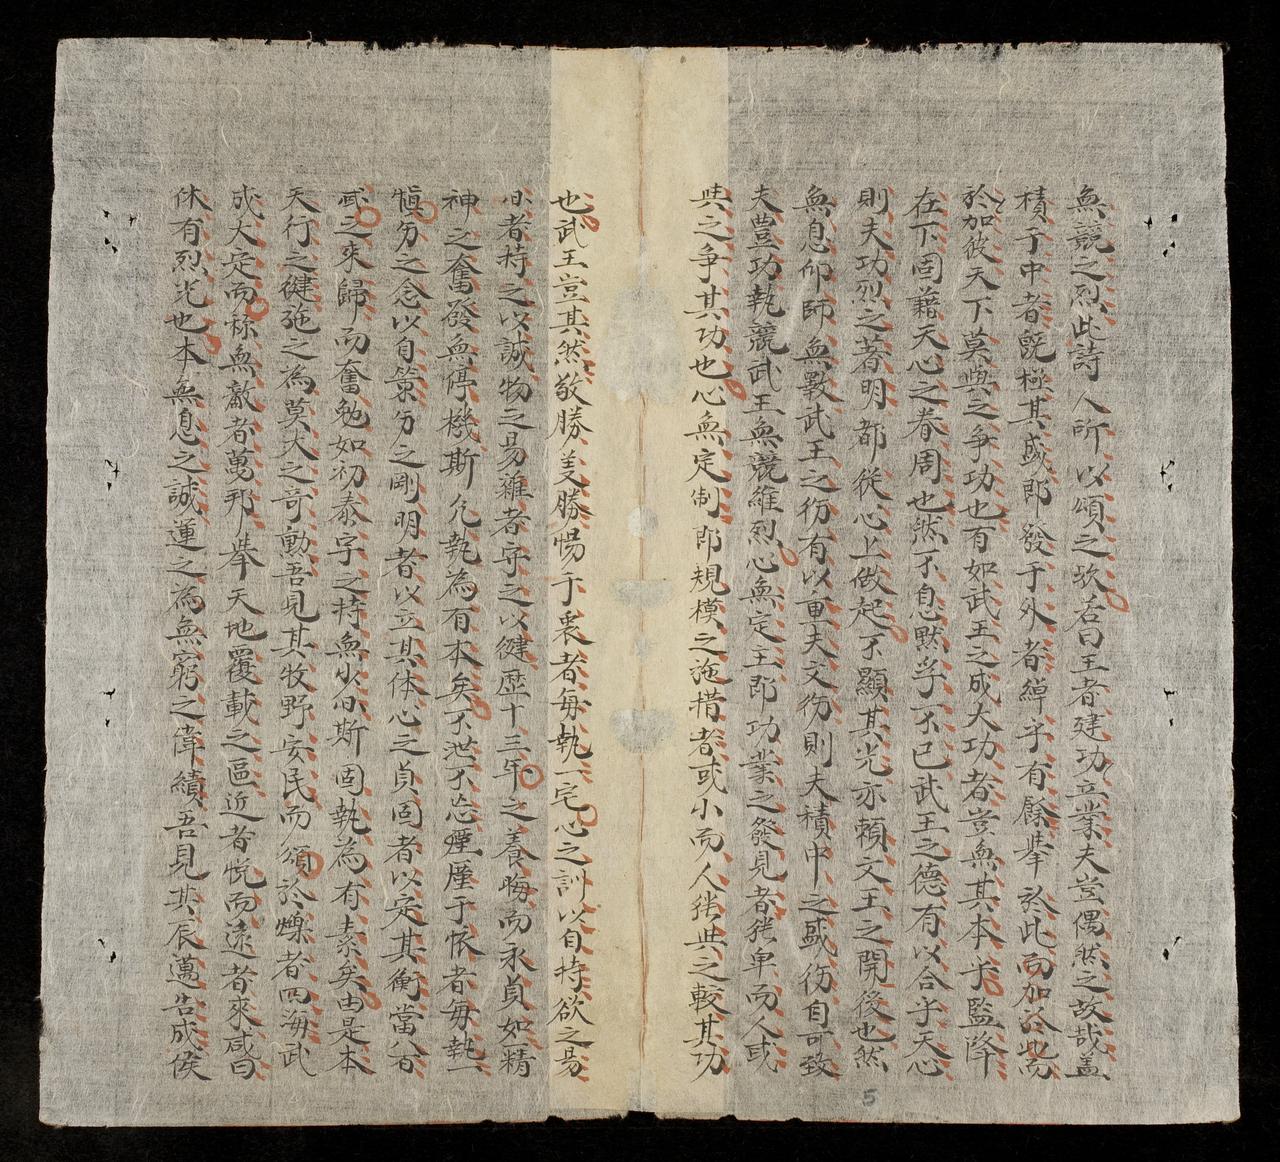 無競之烈此詩人所以頌之欤若曰王者建功立業夫豈偶然之故哉盖
積于中者既極其盛郎發于外者綽乎有餘舉於此而加於彼
於加彼天下莫與之争功也有如武王之成大功者豈無其本乎監降
在下固藉天心之眷周也然不息黙孚不已武王之德有以合乎天心
則夫功烈之著明都従心上做起不顯其光亦頼文王之開後也然
無息仰師無斁武王之衍有以重夫文衍則夫積中之盛衍自可致
夫豊功執競武王無競維烈心無定主即功業之發見者雖卑而人或
與之争其功也心無定制即規模之施措者或小而人雖與之較其功
也武王豈其然敬勝義勝惕于衷者毎執一宅心之訓以自持欲之易
小者持之以誠物之易雜者守之以健歴十三年之養晦而永貞如精
神之奮發無停機斯允執為有本矣不泄不忘塵厪于懐者毎執一
愼勿之念以自策勿之剛明者以立其体心之貞固者以定其衡當八百
武之来歸而奮勉如初泰宇之持無少懈斯固執為有素矣由是本
天行之健施之為莫大之竒勳吾見其牧野安民而頌於爍者四海武
成大定而称無敵者萬邦舉天地覆載之區近者悦而遠者來咸曰
休有烈光也本無息之誠運之為無窮之偉績吾見其辰邁告成侯
5